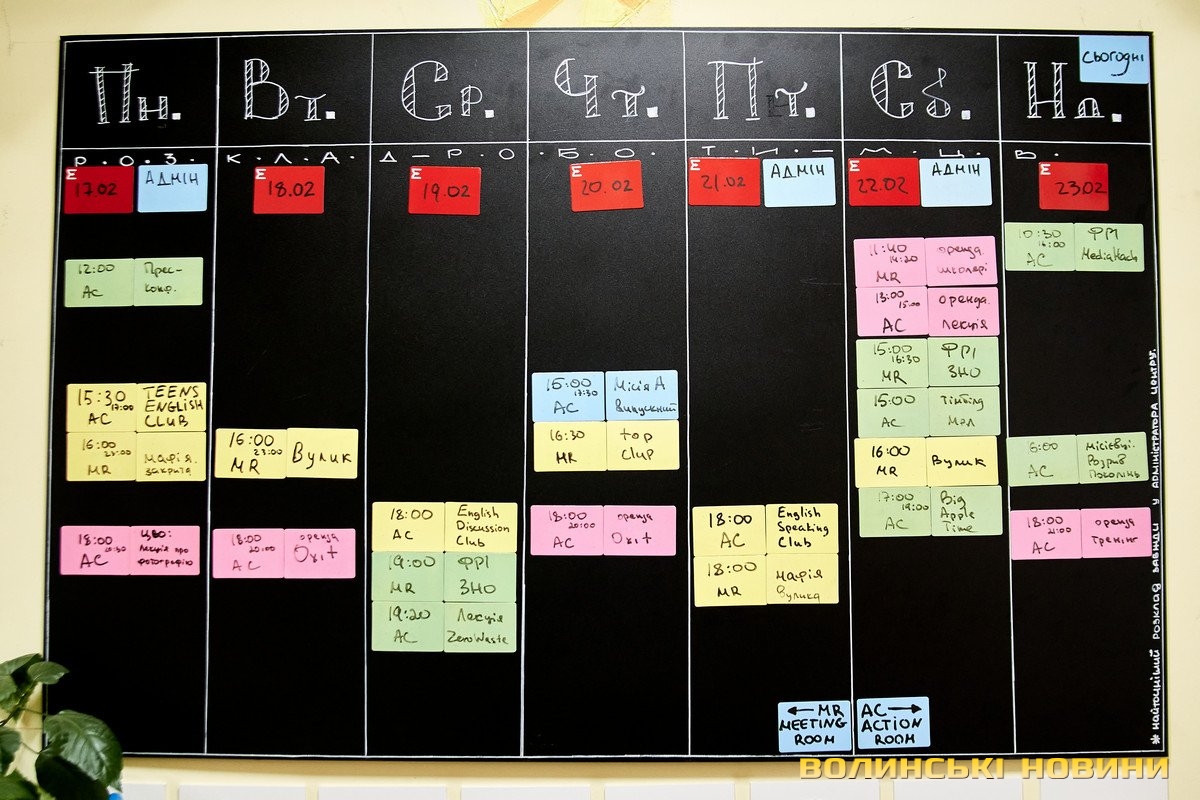 Сьогодні
Пн.
Вт.
Ср.
Чт.
Пт.
Сб.
Нд.
Р.О.З.
К.Л.А.
Д-Р.О
Б.О.
Т.И-
М.Ц.
В.
E
17.02
АДМІН
12:00
АС
Прес-
конф.
15:30
17:00
АС
TEENS
ENGLISH
CLUB
16:00
23:00
MR
мафія.
закрита
18:00
20:30
АС
ЦВО:
Лекція про
фотографію
E
18.02
16:00
23:00
MR
Вулик
18:00
20:00
АС
оренда
Охіт
E
19.02
18:00
АС
English
Discussion
Club
19:00
MR
ФРІ
ЗНО
19:20
АС
Лекція
ZeroWaste
E
20.02
15:00
17:30
АС
Місія А
Випускний
16:30
MR
top
club
18:00
20:00
АС
оренда
Охіт
E
21.02
АДМІН
18:00
АС
English
Speaking
Club
18:00
MR
мафія
Вулика
E
22.02
АДМІН
11:40
14:20
MR
оренда.
школярі
13:00
15:00
АС
оренда.
Лекція
15:00
16:30
MR
ФРІ
ЗНО
15:00
АС
Тімбілд
Мол
16:00
MR
Вулик
17:00
19:00
АС
Big
Apple
Time
E
23.02
10:30
16:00
АС
ФРІ
MediaHack
АС
Розрив
Поколінь
18:00
21:00
АС
оренда
тренінг
← MR
MEETING
ROOM
AC →
ACTION
ROOM
* НАЙТОЧНІШИЙ РОЗКЛАД ЗАВЖДИ У АДМІНІСТРАТОРА ЦЕНТРУ.
ВОЛИНСЬКІ НОВИНИ